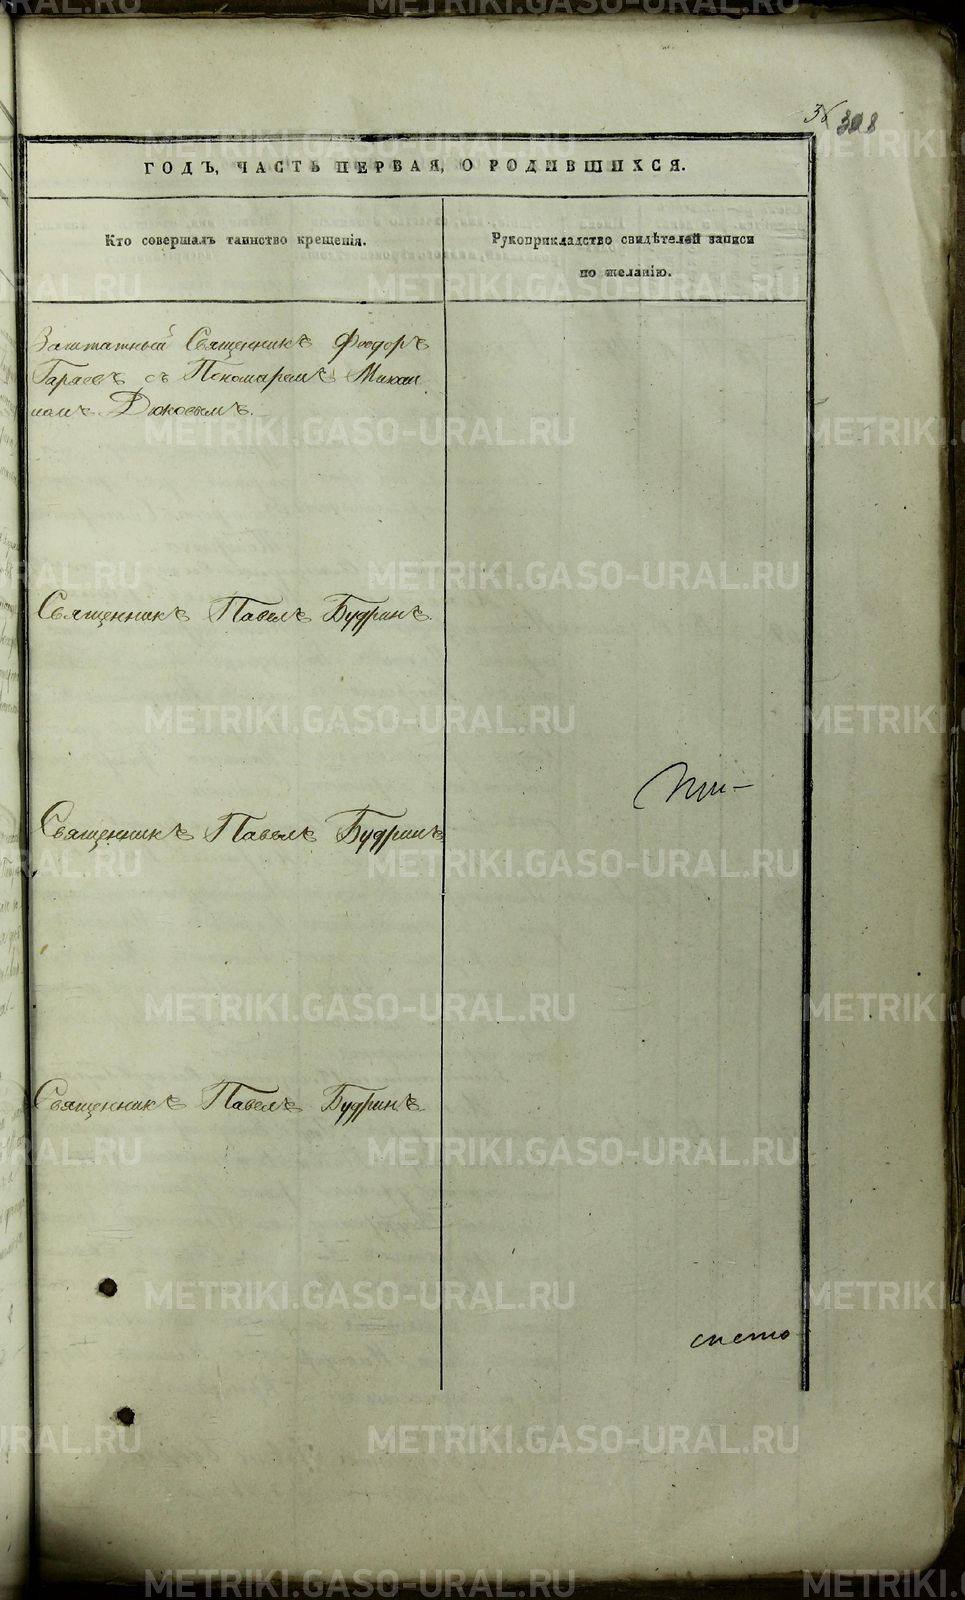 308
ГОДЪ, ЧАСТЬ ПЕРВАЯ, О РОДИВШИХСЯ.
Кто совершалъ таинство крещенія.
Рукоприкладство свидѣтелей записи
по желанію.
Заштатный Священникъ Феодоръ
Гараевъ съ Пономаремъ Михаи
ломъ Дюковымъ.
Священникъ Павелъ Будринъ.
При-
Священникъ Павелъ Будринъ
Священникъ Павелъ Будринъ.
METRIKI.GASO-URAL.RU